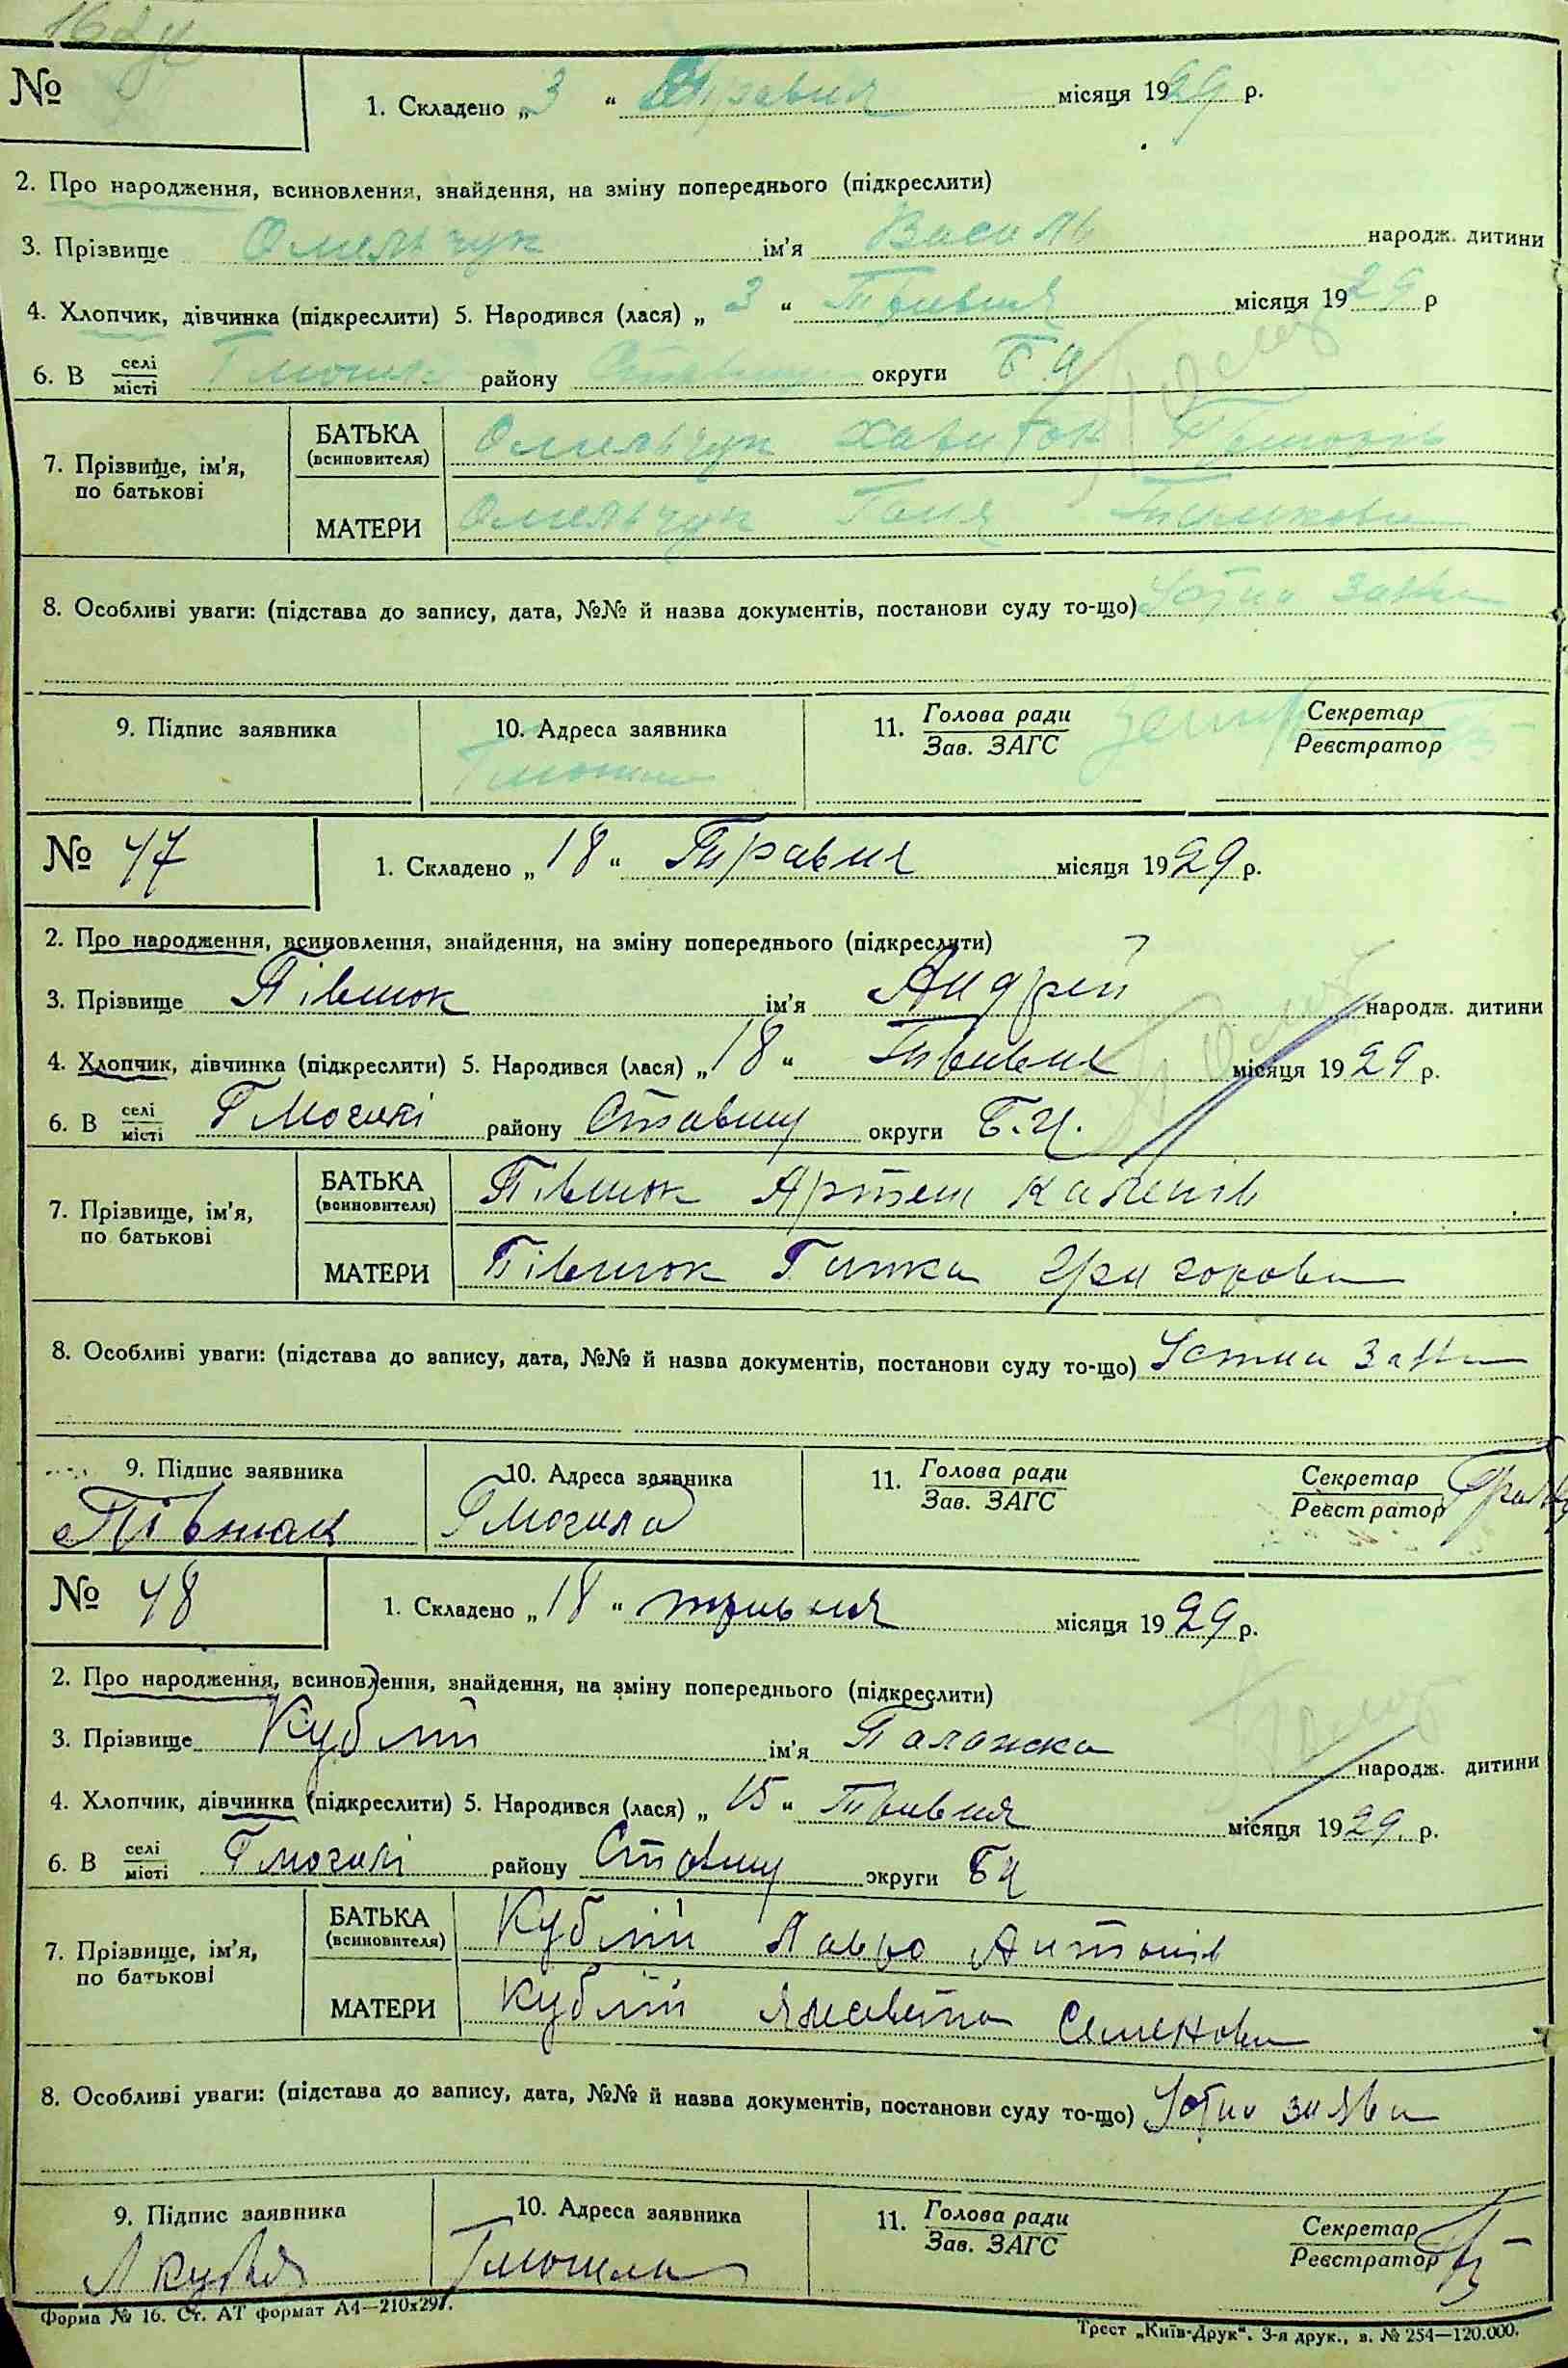 №
1. Складено „3“ Травня місяця 1929 р.
2. Про народження, всиновлення, знайдення, на зміну попереднього (підкреслити)
3. Прізвище Омельчук ім'я Василь народж. дитини
4. Хлопчик, дівчинка (підкреслити) 5. Народився (лася) „3“ Травня місяця 1929 р
6. В селі/місті району округи Б Ц
7. Прізвище, ім'я, по батькові
БАТЬКА (всиновителя) Омельчук Харитон
МАТЕРИ Омельчук Ганя
8. Особливі уваги: (підстава до запису, дата, №№ й назва документів, постанови суду то-що) Устна заява
9. Підпис заявника
10. Адреса заявника
11. Голова ради/Зав. ЗАГС
Секретар/Реєстратор
№ 47
1. Складено „18“ Травня місяця 1929 р.
2. Про народження, всиновлення, знайдення, на зміну попереднього (підкреслити)
3. Прізвище Півнюк ім'я Андрей народж. дитини
4. Хлопчик, дівчинка (підкреслити) 5. Народився (лася) „18“ Травня місяця 1929 р.
6. В селі/місті Г Могилі району Ставищ округи Б.Ц.
7. Прізвище, ім'я, по батькові
БАТЬКА (всиновителя) Півнюк Артем Каленів
МАТЕРИ Півнюк Ганка Григорова
8. Особливі уваги: (підстава до запису, дата, №№ й назва документів, постанови суду то-що) Устна заява
9. Підпис заявника Півнюк
10. Адреса заявника Г Могила
11. Голова ради/Зав. ЗАГС
Секретар/Реєстратор
№ 48
1. Складено „18“ травня місяця 1929 р.
2. Про народження, всиновлення, знайдення, на зміну попереднього (підкреслити)
3. Прізвище Кублій ім'я Палажка народж. дитини
4. Хлопчик, дівчинка (підкреслити) 5. Народився (лася) „15“ Травня місяця 1929 р.
6. В селі/місті Г Могилі району Ставищ округи БЦ
7. Прізвище, ім'я, по батькові
БАТЬКА (всиновителя) Кублій Павло Антонів
МАТЕРИ Кублій Ялисавета Семенова
8. Особливі уваги: (підстава до запису, дата, №№ й назва документів, постанови суду то-що) Устна заява
9. Підпис заявника
10. Адреса заявника Г Могила
11. Голова ради/Зав. ЗАГС
Секретар/Реєстратор
Форма № 16. Ст. АТ формат А4—210х297.
Трест „Київ-Друк“. 3-я друк., з. № 254—120.000.